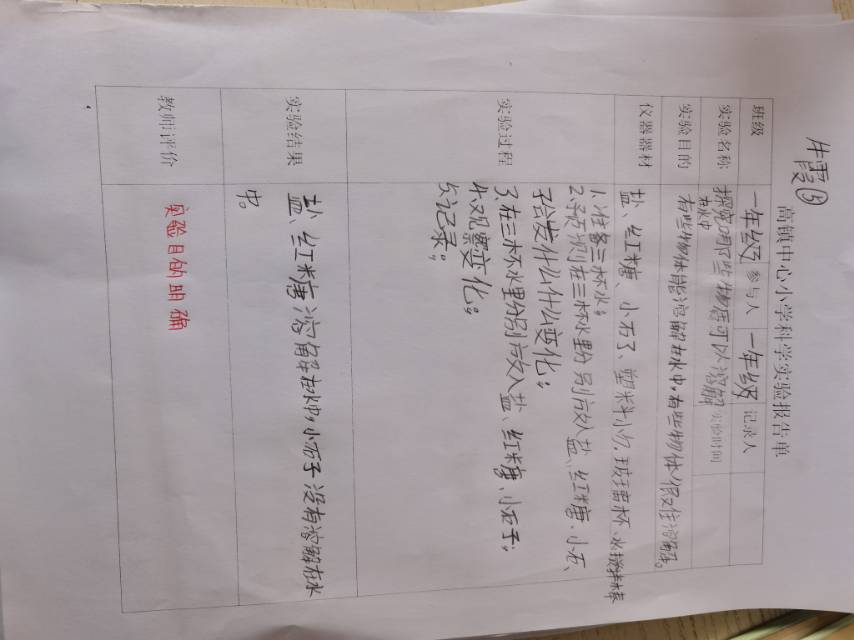 牛霞⑤
高镇中心小学科学实验报告单
班级 一年级 参与人 一年级 记录人
实验名称: 探究哪些物质可以溶解在水中 实验时间
实验目的 有些物体能溶解在水中,有些物体很难溶解。
仪器器材 盐、红糖、小石子、塑料小勺、玻璃杯、水、搅拌棒
实验过程
1、准备三杯水;
2、预测在三杯水里分别放入盐、红糖、小石、
子会发什么什么变化;
3、在三杯水里分别放入盐、红糖、小石子;
4、观察变化;
5、记录;
实验结果
盐、红糖溶解在水中,小石子没有溶解在水
中。
教师评价 实验目的明确